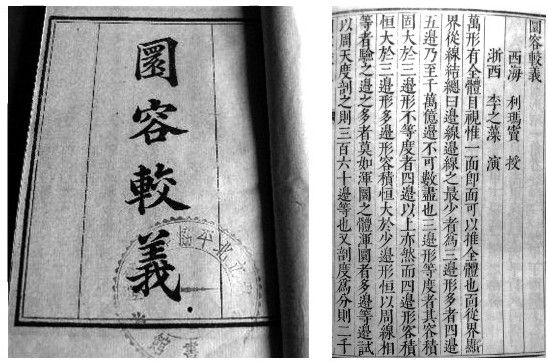 圜容較義
圜容較義
西海 利瑪竇 授
浙西 李之藻 演
萬形有全體目視惟一面即面可以推全體也面從界顯
界從線結總曰邊線邊線之最少者爲三邊形多者四邊
五邊乃至千萬億邊不可數盡也三邊形等度者其容積
固大於三邊形不等度者四邊以上亦然而四邊形容積
恒大於三邊形多邊形容積恒大於少邊形恒以周線相
等者驗之邊之多者莫如渾圜之體渾圜者多邊等邊試
以周天度剖之則三百六十邊等也又剖度爲分則二千